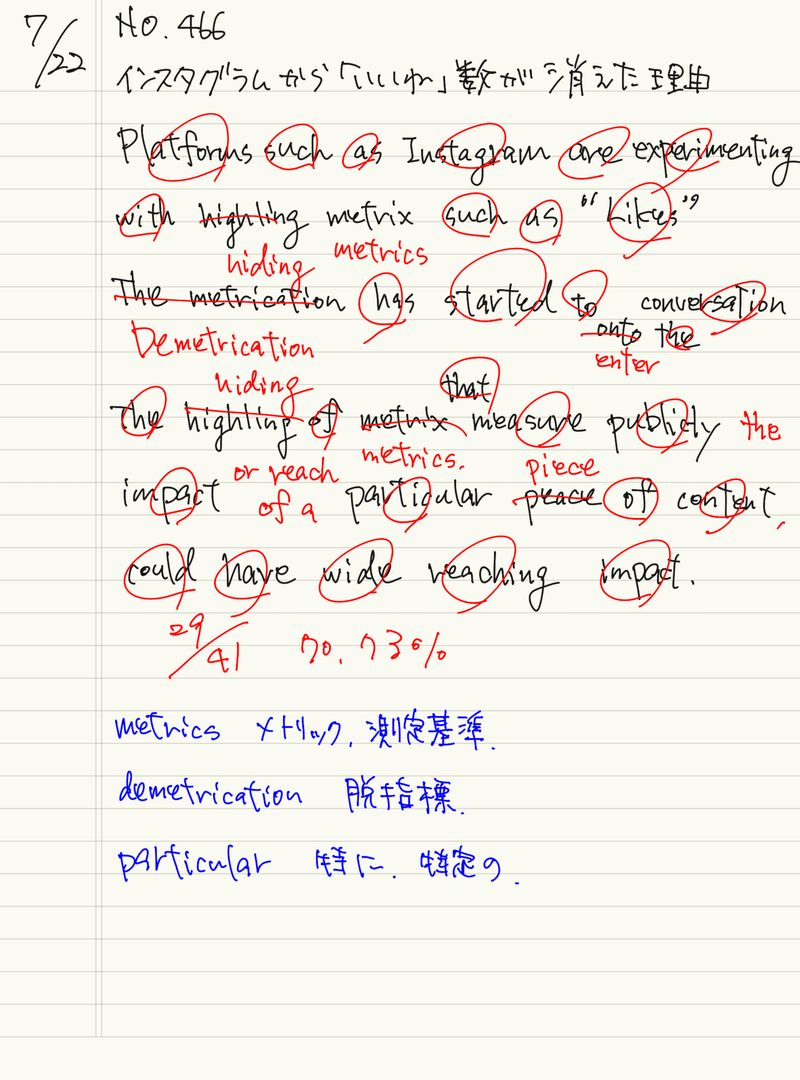 7/22
NO. 466
インスタグラムから「いいね」数が消えた理由
Platforms such as Instagram are experimenting
with highling metrix such as "Likes"
hiding metrics
The metrication has started to conversation
Demetrication onto the
enter
hiding that
The highling of metrix measure publicly the
metrics.
or reach piece
impact of a particular peace of content,
could have wide reaching impact.
29/41 70.73%
metrics メトリック, 測定基準.
demetrication 脱指標.
particular 特に. 特定の.